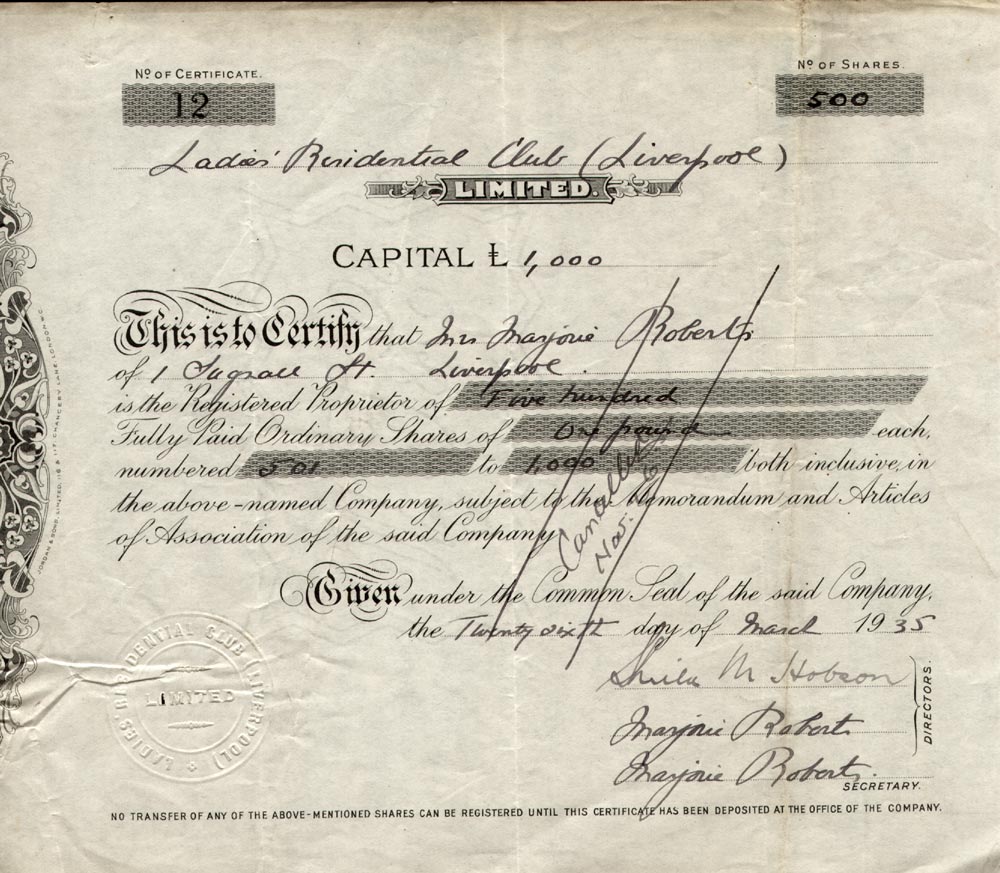 Nº OF CERTIFICATE.
12
Nº OF SHARES.
500
Ladies' Residential Club (Liverpool)
LIMITED.
CAPITAL £ 1,000
This is to Certify that Mrs Marjorie Roberts
of 1 St. Liverpool.
is the Registered Proprietor of Five hundred
Fully Paid Ordinary Shares of One pound each,
numbered 501 to 1,000 both inclusive, in
the above-named Company, subject to the Memorandum and Articles
of Association of the said Company
Cancelled
Nov.
Given under the Common Seal of the said Company,
the Twenty sixth day of March 1935
Sheila M Hobson
Marjorie Roberts
DIRECTORS.
Marjorie Roberts.
SECRETARY.
LADIES' RESIDENTIAL CLUB (LIVERPOOL)
LIMITED
NO TRANSFER OF ANY OF THE ABOVE-MENTIONED SHARES CAN BE REGISTERED UNTIL THIS CERTIFICATE HAS BEEN DEPOSITED AT THE OFFICE OF THE COMPANY.